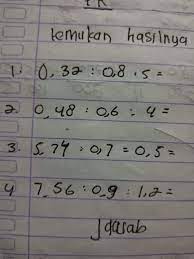 PR
temukan hasilnya
1. 0,32 : 0,8 . 5 =
2. 0,48 : 0,6 : 4 =
3. 5,74 : 0,7 = 0,5 =
4 7,56 : 0,9 : 1,2 =
Jawab